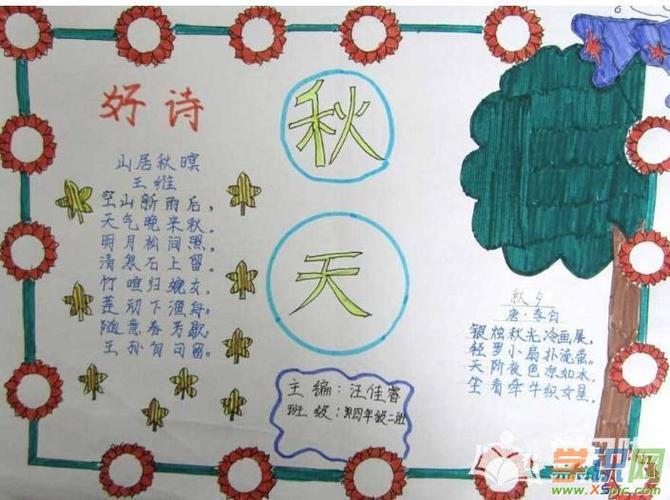 好诗
秋
天
山居秋暝
王维
空山新雨后，
天气晚来秋。
明月松间照，
清泉石上留。
竹喧归浣女，
莲动下渔舟。
随意春芳歇，
王孙自可留。
秋夕
唐·
银烛秋光冷画屏，
轻罗小扇扑流萤。
天阶夜色凉如水，
坐看牵牛织女星。
主编：汪佳睿
班级：四年级二班
学识网
www.XSpic.com